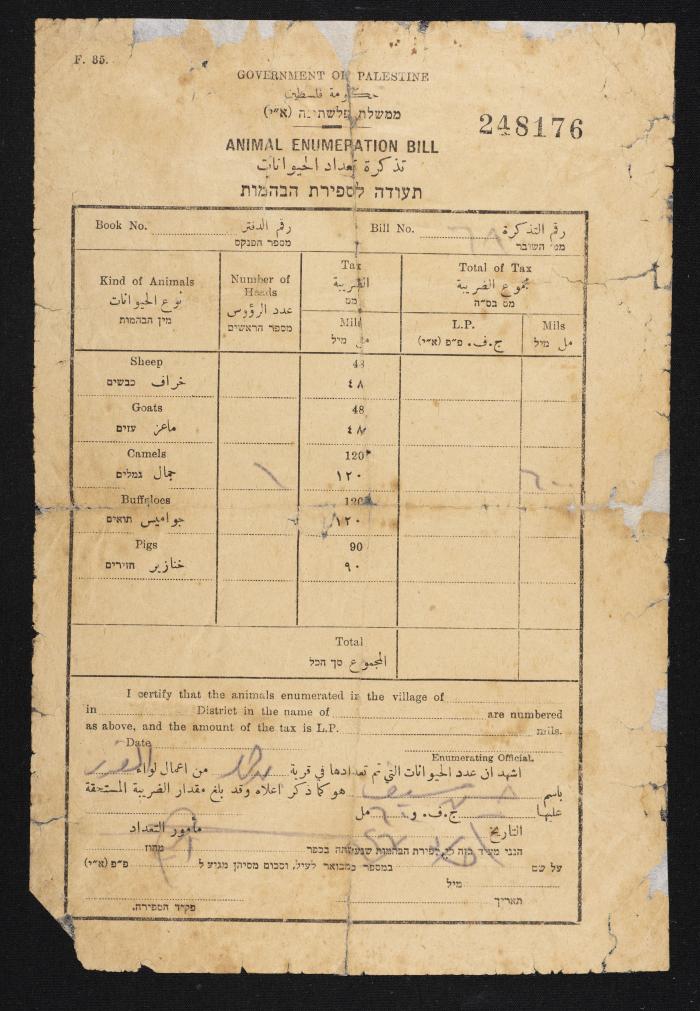 F. 35.
GOVERNMENT OF PALESTINE
حكومة فلسطين
ממשלת פלשתינה (א״י)
248176
ANIMAL ENUMERATION BILL
تذكرة تعداد الحيوانات
תעודה לספירת הבהמות
Book No. رقم الدفتر
מספר הפנקס
Bill No. ٦٨ رقم التذكرة
מס׳ השובר
Kind of Animals
نوع الحيوانات
מין הבהמות
Number of Heads
عدد الرؤوس
מספר הראשים
Tax
الضريبة
מס
Mils
مل מיל
Total of Tax
مجموع الضريبة
מס בס״ה
L.P.
ج.ف. פ״פ (א״י)
Mils
مل מיל
Sheep 48
خراف כבשים ٤٨
Goats 48
ماعز עזים ٤٨
Camels 120
جمال גמלים ١٢٠
Buffaloes 120
جواميس תואים ١٢٠
Pigs 90
خنازير חזירים ٩٠
Total
المجموع סך הכל
I certify that the animals enumerated in the village of
in District in the name of are numbered
as above, and the amount of the tax is L.P. mils.
Date
Enumerating Official.
اشهد ان عدد الحيوانات التي تم تعدادها في قرية من اعمال لواء
باسم هو كما ذكر اعلاه وقد بلغ مقدار الضريبة المستحقة
عليها ج.ف. و مل
التاريخ مأمور التعداد
הנני מעיד בזה כי ספירת הבהמות שנעשתה בכפר מחוז
על שם במספר כמבואר לעיל, וסכום מסיהן מגיע ל פ״פ (א״י)
מיל
תאריך
פקיד הספירה.